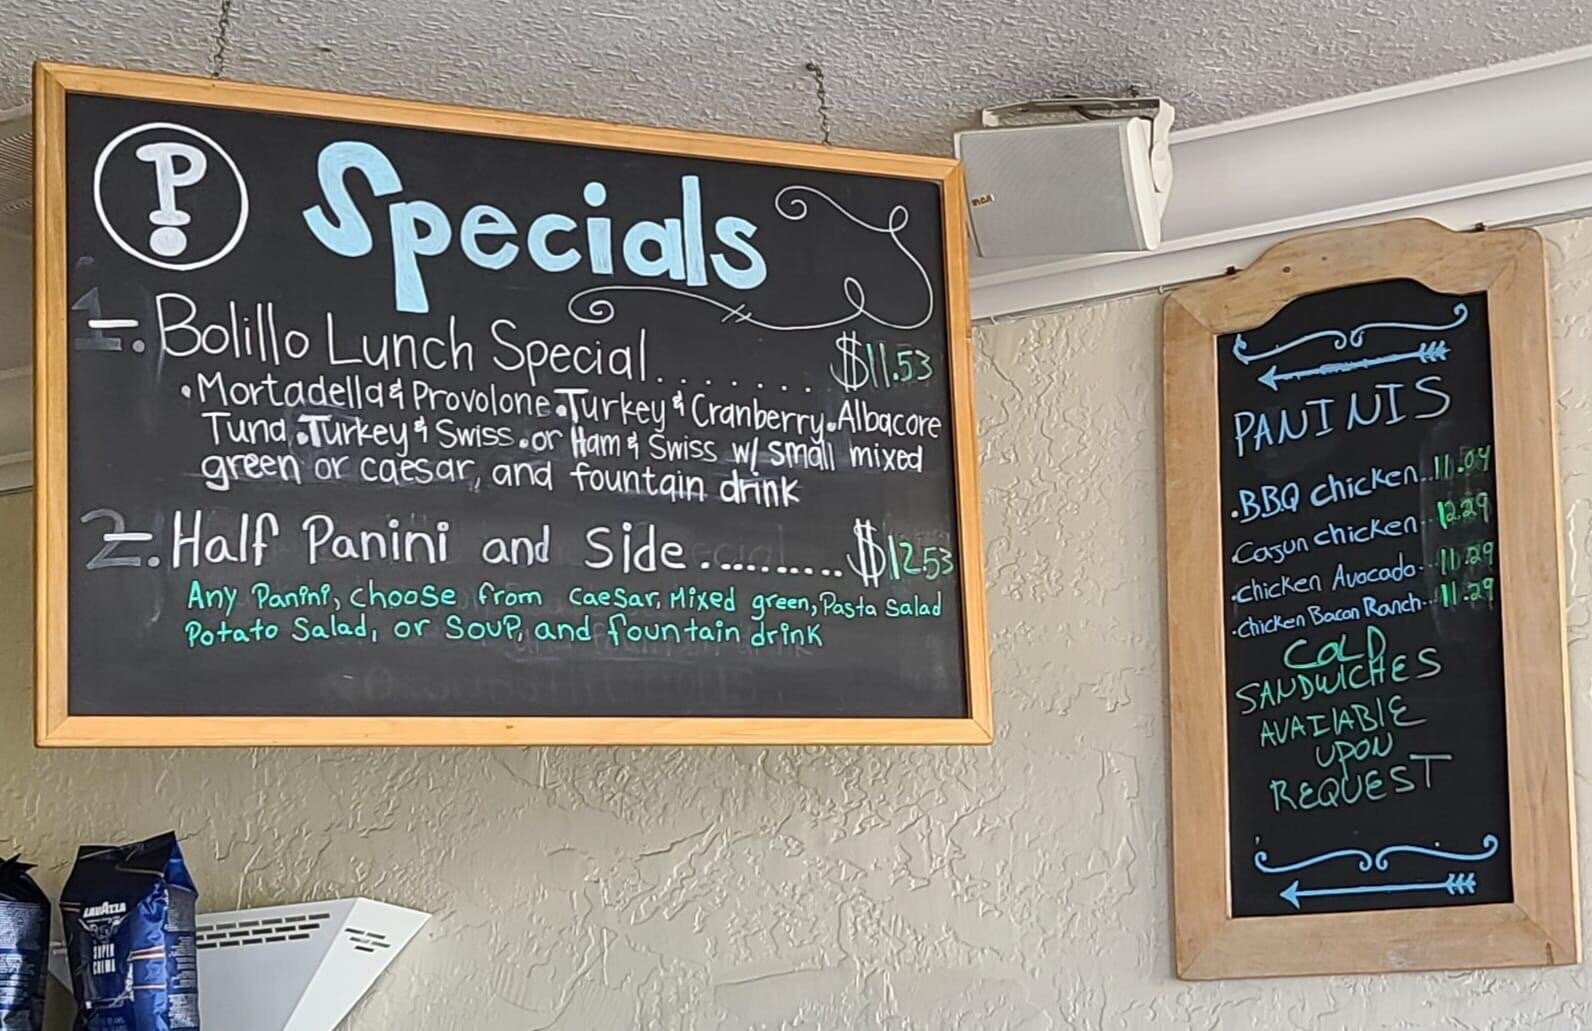 P
Specials
1. Bolillo Lunch Special........ $11.53
•Mortadella & Provolone •Turkey & Cranberry •Albacore
Tuna •Turkey & Swiss •or Ham & Swiss w/ small mixed
green or caesar, and fountain drink
2. Half Panini and Side.......... $12.53
Any Panini, choose from caesar, Mixed green, Pasta salad
Potato Salad, or Soup, and fountain drink
RCA
PANINIS
•BBQ chicken...11.04
•Cajun chicken...12.29
•chicken Avocado...11.29
•chicken Bacon Ranch...11.29
COLD
SANDWICHES
AVAILABLE
UPON
REQUEST
LAVAZZA
SUPER
CREMA